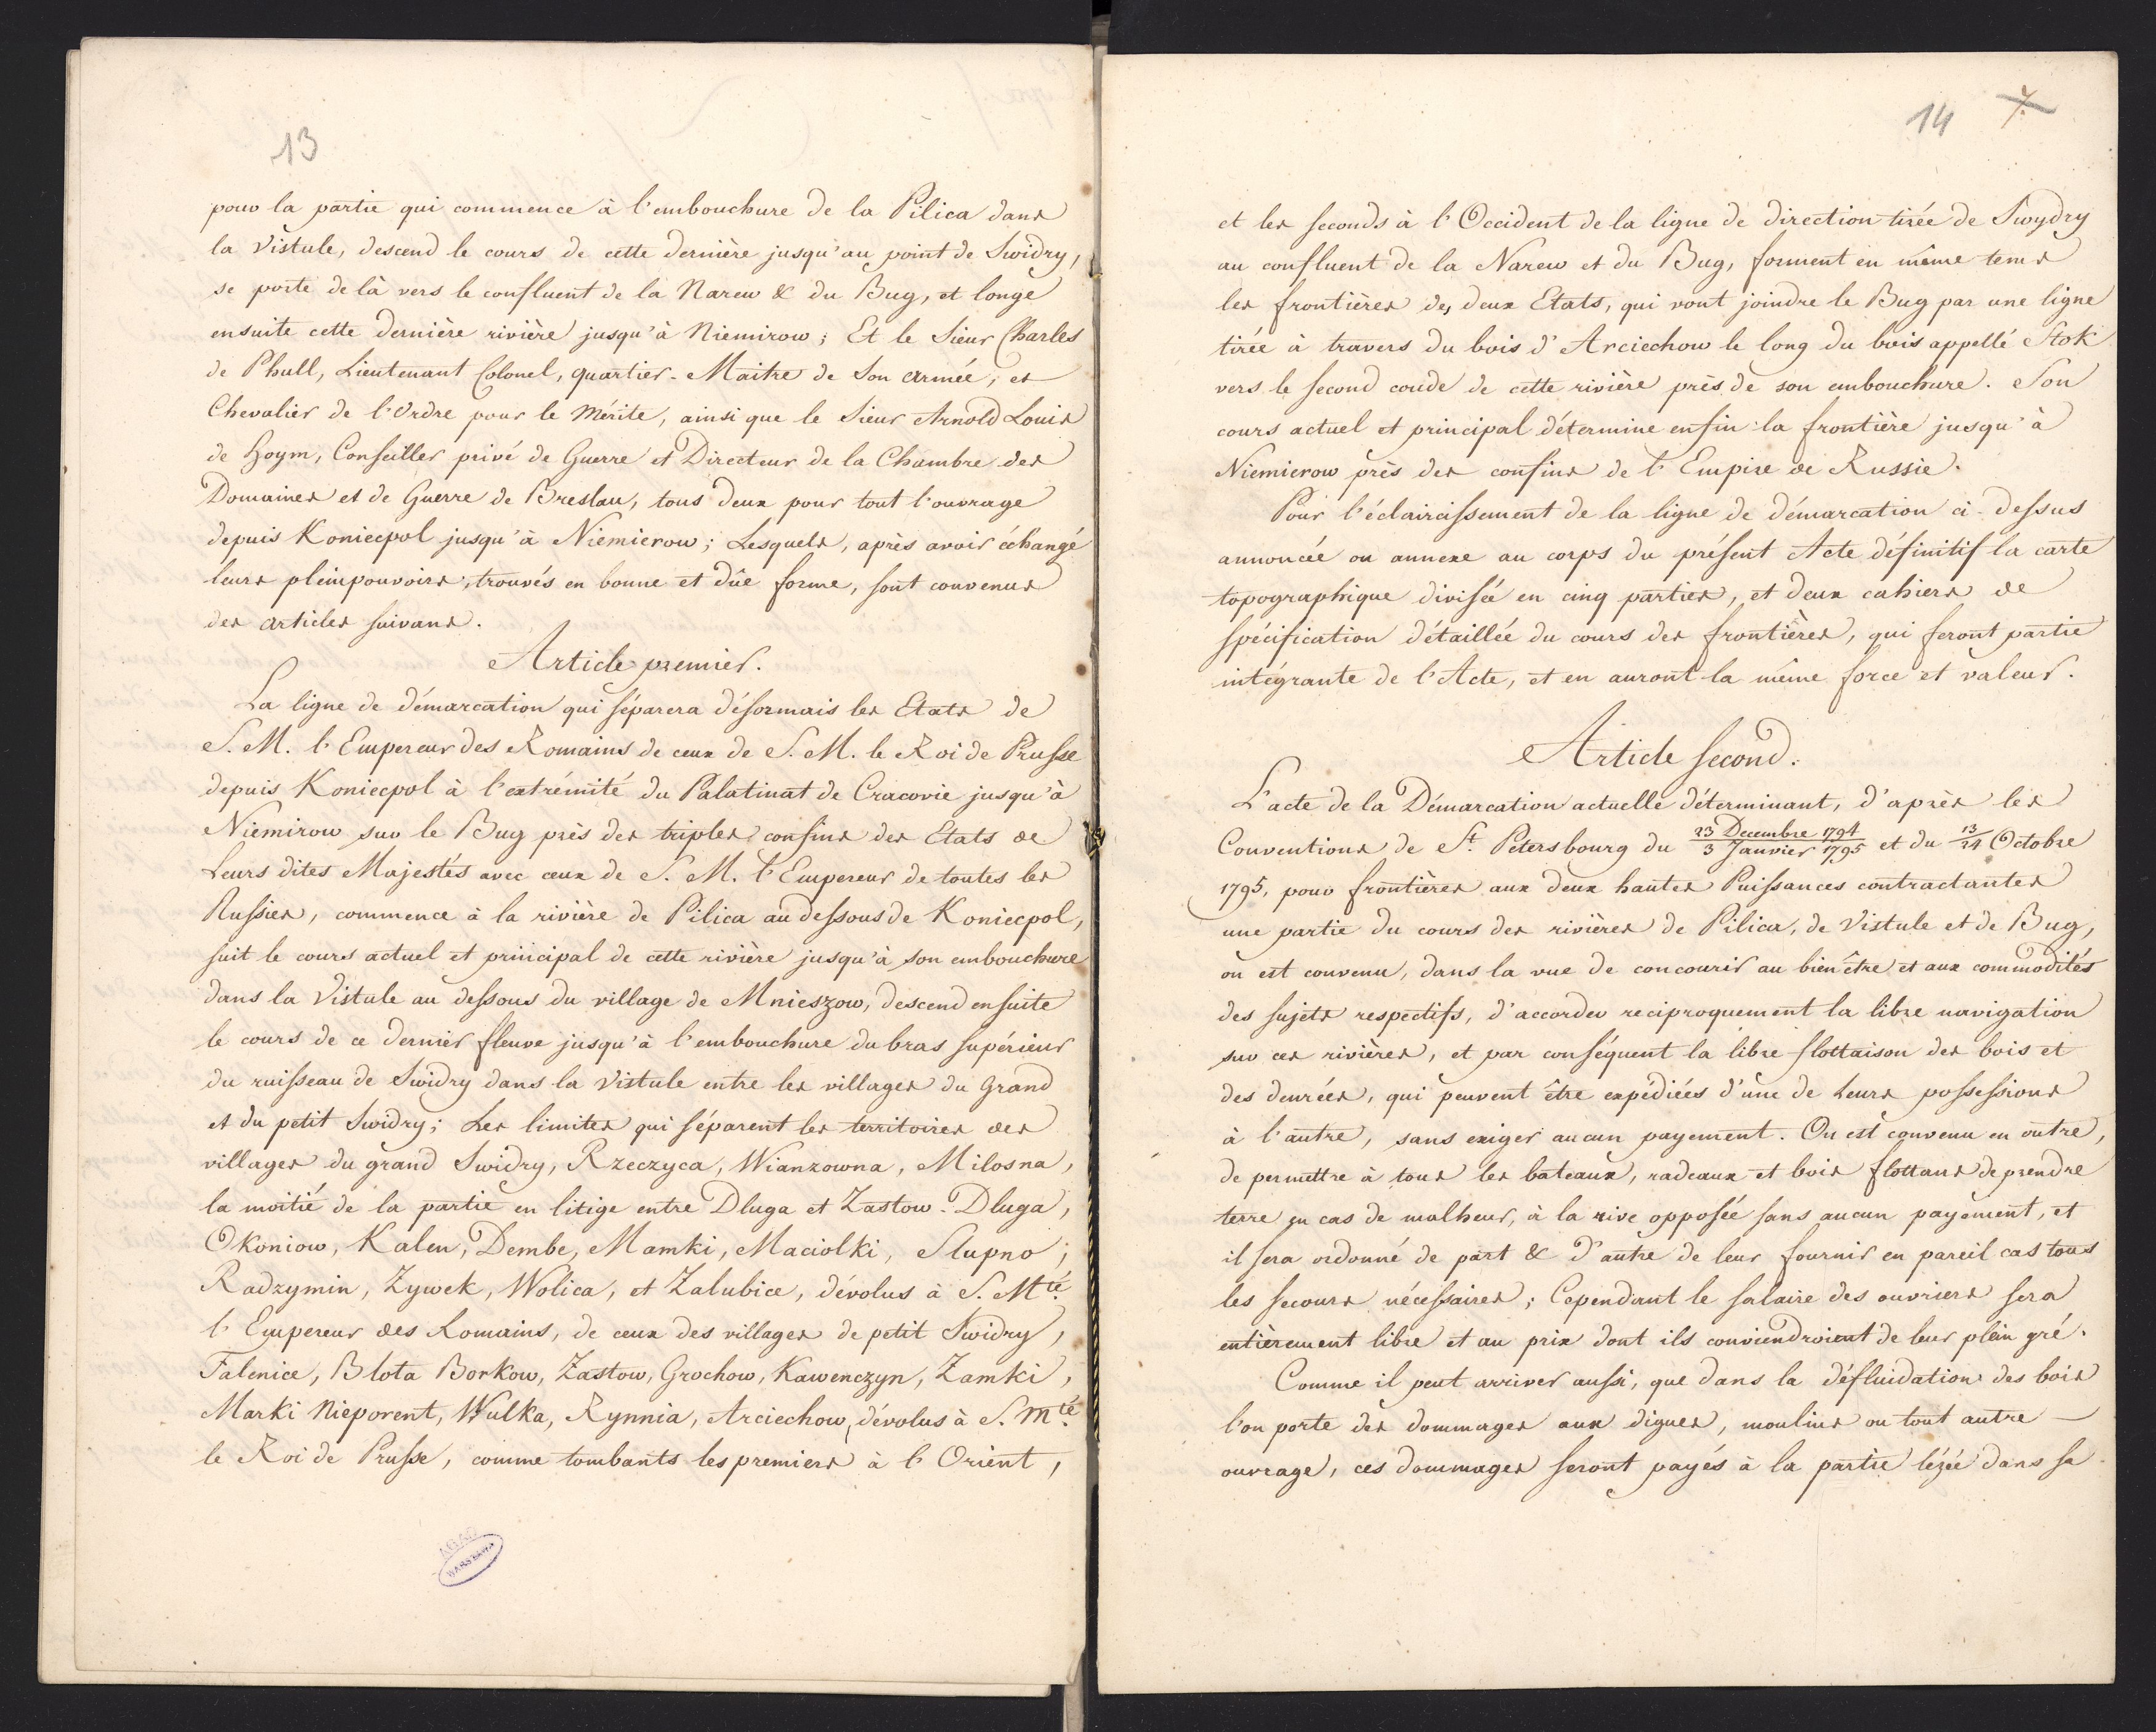 13
pour la partie qui commence à l'embouchure de la Pilica dans
la Vistule, descend le cours de cette dernière jusqu'au point de Swidry,
se porte de là vers le confluent de la Narew & du Bug, et longe
ensuite cette dernière rivière jusqu'à Niemirow; Et le Sieur Charles
de Phull, Lieutenant Colonel, quartier-Maitre de Son armée, et
Chevalier de l'Ordre pour le Mérite, ainsi que le Sieur Arnold Louis
de Hoym, Conseiller privé de Guerre et Directeur de la Chambre des
Domaines et de Guerre de Breslau, tous deux pour tout l'ouvrage
depuis Koniecpol jusqu'à Niemierow; Lesquels, après avoir échangé
leurs pleinpouvoirs, trouvés en bonne et dûe forme, sont convenus
des articles suivans.
Article premier.
La ligne de démarcation qui séparera désormais les Etats de
S. M. l'Empereur des Romains de ceux de S. M. le Roi de Prusse
depuis Koniecpol à l'extrémité du Palatinat de Cracovie jusqu'à
Niemirow sur le Bug près des triples confins des Etats de
Leurs dites Majestés avec ceux de S. M. l'Empereur de toutes les
Russies, commence à la rivière de Pilica au dessous de Koniecpol,
suit le cours actuel et principal de cette rivière jusqu'à son embouchure
dans la Vistule au dessous du village de Mnieszow, descend ensuite
le cours de ce dernier fleuve jusqu'à l'embouchure du bras supérieur
du ruisseau de Swidry dans la Vistule entre les villages du Grand
et du petit Swidry; Les limites qui séparent les territoires des
villages du grand Swidry, Rzeczyca, Wianzowna, Milosna,
la moitié de la partie en litige entre Dluga et Zastow-Dluga,
Okoniow, Kalen, Dembe, Mamki, Maciolki, Slupno;
Radzymin, Zywek, Wolica, et Zalubice, dévolus à S. Mté
l'Empereur des Romains, de ceux des villages de petit Swidry,
Falenice, Blota Borkow, Zastow, Grochow, Kawenczyn, Zamki,
Marki Nieporent, Wulka, Rynnia, Arciechow, dévolus à S. Mté
le Roi de Prusse, comme tombants les premiers à l'Orient,
AGAD
WARSZAWA
14
et les seconds à l'Occident de la ligne de direction tirée de Swydry
au confluent de la Narew et du Bug, forment en même tems
les frontières des deux Etats, qui vont joindre le Bug par une ligne
tirée à travers du bois d'Arciechow le long du bois appellé Stok
vers le second coude de cette rivière près de son embouchure. Son
cours actuel et principal détermine enfin la frontière jusqu'à
Niemierow près des confins de l'Empire de Russie.
Pour l'éclaircissement de la ligne de démarcation ci-dessus
annoncée on annexe au corps du présent Acte définitif la carte
topographique divisée en cinq parties, et deux cahiers de
spécification détaillée du cours des frontières, qui seront partie
intégrante de l'Acte, et en auront la même force et valeur.
Article second.
L'acte de la Démarcation actuelle déterminant, d'après les
Conventions de St. Petersbourg du 23 Decembre 1794/3 Janvier 1795 et du 13/24 Octobre
1795, pour frontières aux deux hautes Puissances contractantes
une partie du cours des rivières de Pilica, de Vistule et de Bug,
on est convenu, dans la vue de concourir au bien être et aux commodités
des sujets respectifs, d'accorder reciproquement la libre navigation
sur ces rivières, et par conséquent la libre flottaison des bois et
des denrées, qui peuvent être expédiées d'une de Leurs possessions
à l'autre, sans exiger aucun payement. On est convenu en outre,
de permettre à tous les bateaux, radeaux et bois flottans de prendre
terre en cas de malheur, à la rive opposée sans aucun payement, et
il sera ordonné de part & d'autre de leur fournir en pareil cas tous
les secours nécessaires; Cependant le salaire des ouvriers sera
entièrement libre et au prix dont ils conviendroient de leur plein gré.
Comme il peut arriver aussi, que dans la défluidation des bois
l'on porte des dommages aux digues, moulins ou tout autre
ouvrage, ces dommages seront payés à la partie lézée dans sa